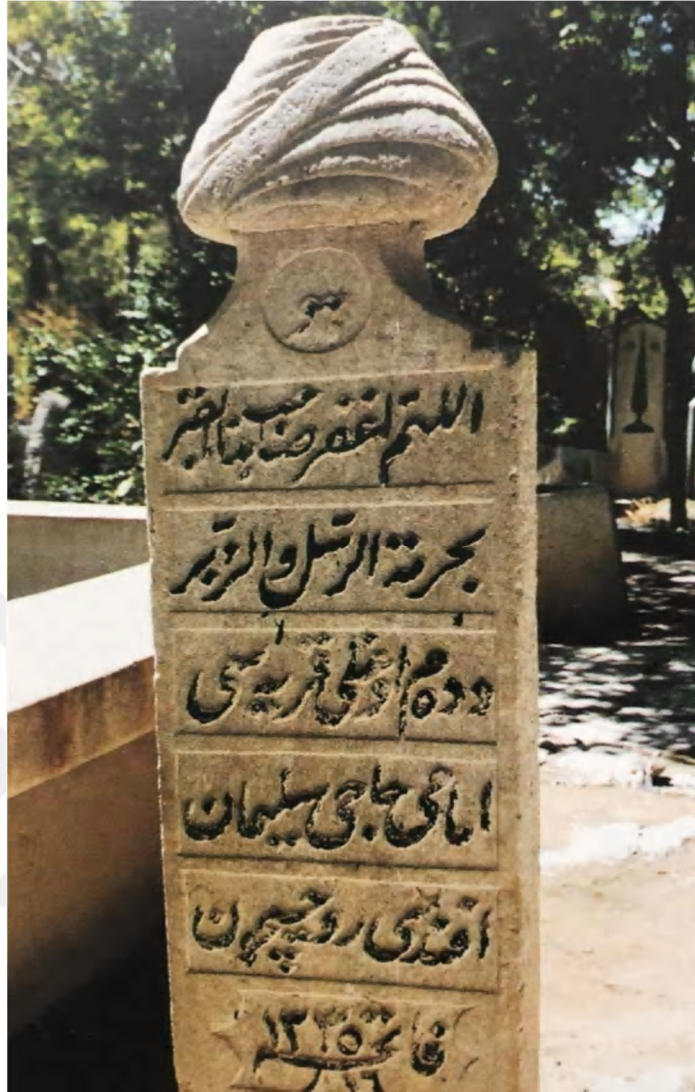 هو
اللهم اغفر صاحب هذا القبر
بحرمة الرسل والزبر
دده م اوغلی قریه سی
امامی حاجی سلیمان
افندی روحیچون
فاتحه ١٣٤٥